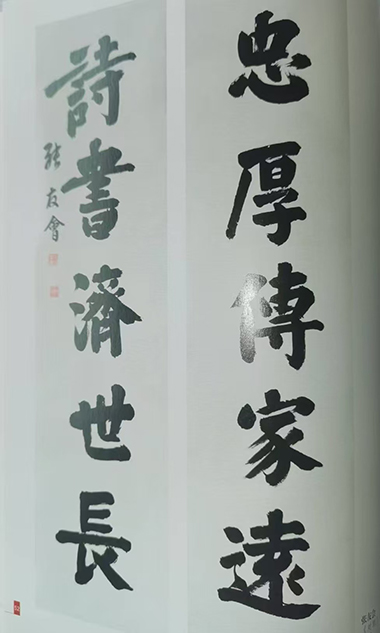 忠厚傳家遠
詩書濟世長
張友會